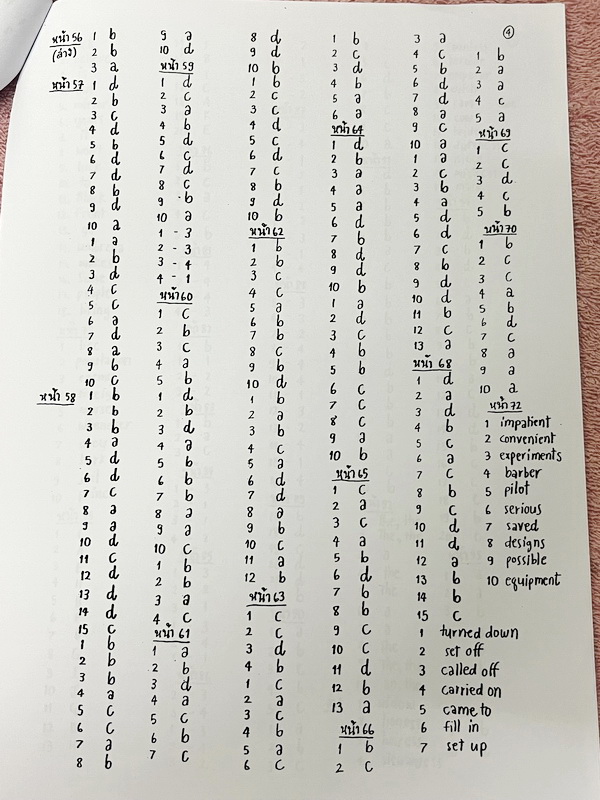 หน้า 56 1 b
(ล่าง) 2 b
3 a
หน้า 57 1 d
2 b
3 c
4 d
5 b
6 d
7 d
8 b
9 d
10 a
1 a
2 b
3 d
4 c
5 c
6 a
7 d
8 a
9 b
10 c
หน้า 58 1 b
2 b
3 b
4 a
5 d
6 d
7 c
8 a
9 a
10 d
11 c
12 d
13 d
14 d
15 c
1 b
2 b
3 b
4 a
5 c
6 c
7 a
8 b
9 a
10 d
หน้า 59
1 d
2 c
3 a
4 b
5 d
6 c
7 d
8 c
9 b
10 a
1 - 3
2 - 3
3 - 4
4 - 1
หน้า 60
1 c
2 b
3 c
4 a
5 b
1 d
2 b
3 d
4 a
5 b
6 b
7 b
8 a
9 a
10 c
1 b
2 b
3 a
4 c
หน้า 61
1 a
2 b
3 d
4 a
5 c
6 b
7 c
8 d
9 d
10 b
1 b
2 c
3 c
4 d
5 c
6 d
7 c
8 b
9 d
10 b
หน้า 62
1 b
2 b
3 c
4 c
5 a
6 b
7 b
8 c
9 b
10 d
1 b
2 a
3 b
4 c
5 a
6 d
7 d
8 a
9 b
10 c
11 a
12 b
หน้า 63
1 c
2 c
3 d
4 b
1 c
2 a
3 c
4 b
5 a
6 c
1 b
2 c
3 d
4 b
5 a
6 a
หน้า 64
1 d
2 b
3 a
4 a
5 a
6 d
7 b
8 d
9 d
10 b
1 a
2 d
3 c
4 b
5 b
6 c
7 c
8 c
9 a
10 b
หน้า 65
1 c
2 a
3 c
4 a
5 b
6 d
7 b
8 b
9 c
10 c
11 d
12 b
13 a
หน้า 66
1 b
2 c
3 a
4 c
5 b
6 d
7 d
8 a
9 c
10 a
1 a
2 c
3 b
4 a
5 d
6 d
7 c
8 b
9 d
10 d
11 b
12 c
13 a
หน้า 68
1 d
2 a
3 d
4 b
5 c
6 a
7 c
8 b
9 c
10 d
11 d
12 a
13 b
14 b
15 c
1 turned down
2 set off
3 called off
4 carried on
5 came to
6 fill in
7 set up
4
1 b
2 a
3 a
4 c
5 a
หน้า 69
1 c
2 c
3 d
4 c
5 b
หน้า 70
1 b
2 c
3 c
4 a
5 b
6 d
7 c
8 a
9 a
10 a
หน้า 72
1 impatient
2 convenient
3 experiments
4 barber
5 pilot
6 serious
7 saved
8 designs
9 possible
10 equipment